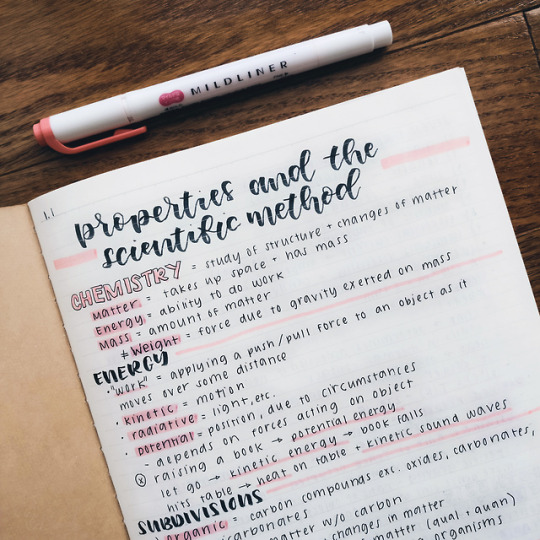 MILDLINER
1.1
properties and the
scientific method
CHEMISTRY = study of structure + changes of matter
Matter = takes up space + has mass
Energy = ability to do work
Mass = amount of matter
* Weight = force due to gravity exerted on mass
ENERGY
• "work" = applying a push/pull force to an object as it
moves over some distance
• kinetic = motion
• radiative = light, etc.
• potential = position, due to circumstances
- depends on forces acting on object
raising a book → potential energy
let go → kinetic energy → book falls
hits table → heat on table + kinetic sound waves
SUBDIVISIONS
organic = carbon compounds exc. oxides, carbonates,
carbonates
matter w/o carbon
changes in matter
matter (qual + quan)
organisms